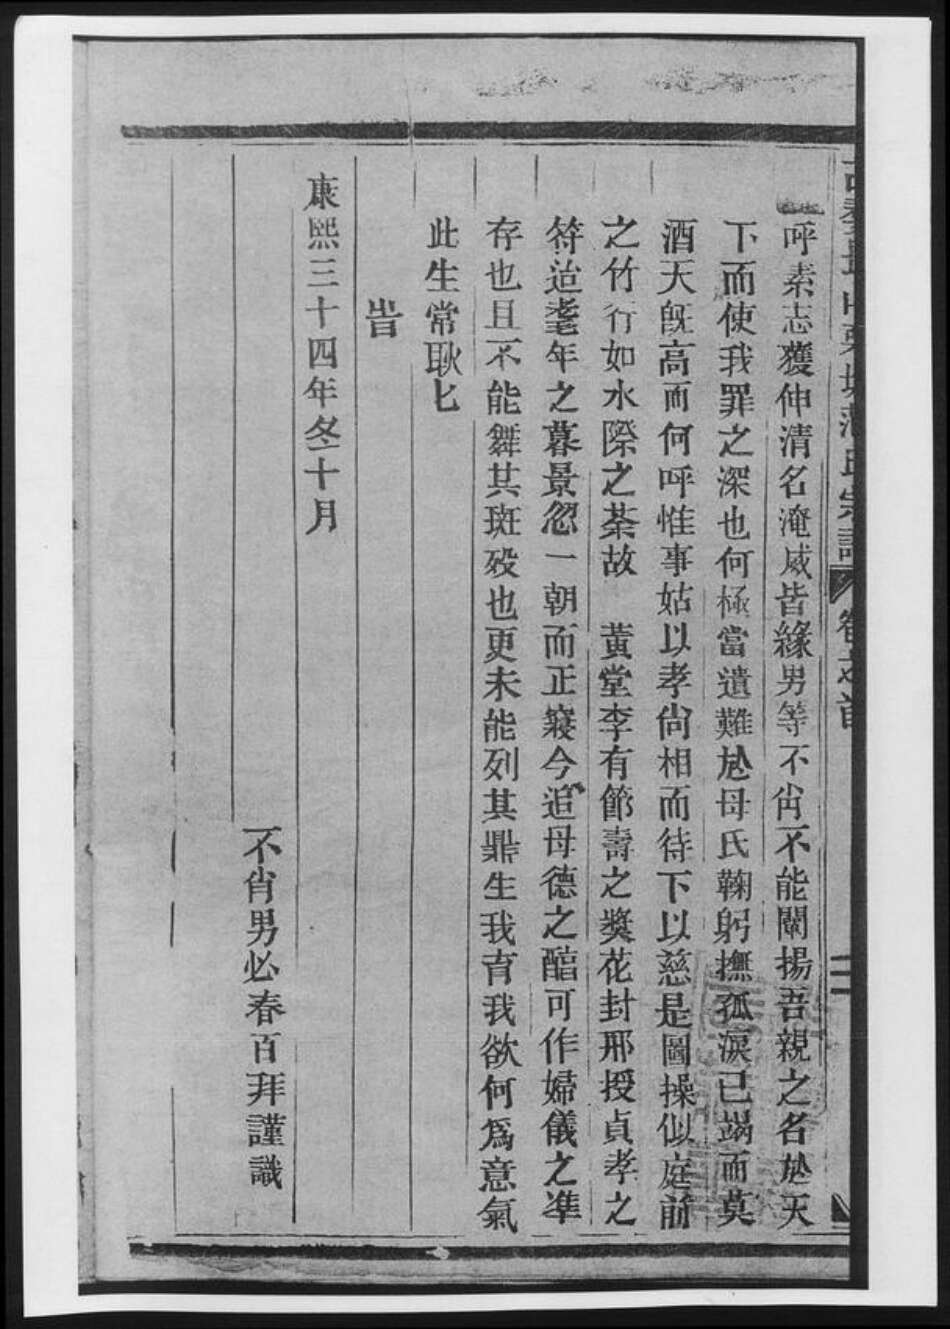 呼素志獲伸清名淹威皆緣男等不肖不能闡揚吾親之名於天
下而使我罪之深也何極當遺難於母氏鞠躬撫孤淚已竭而莫
酒天旣高而何呼惟事姑以孝尙相而待下以慈是圖操似庭前
之竹行如水際之荼故　黃堂李有節壽之獎花封邢授貞孝之
符迨耄年之暮景忽一朝而正寢今追母德之醕可作婦儀之準
存也且不能舞其斑歿也更未能列其鼎生我育我欲何爲意氣
此生常耿匕
旹
康熙三十四年冬十月
不肖男必春百拜謹識
氏宗譜
卷之首
二